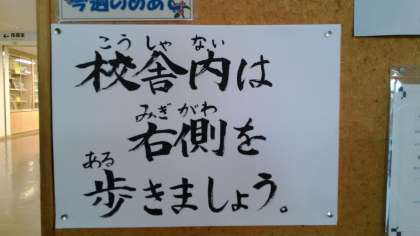 今週のめあて
こうしゃない
校舎内は
みぎがわ
右側を
ある
歩きましょう。